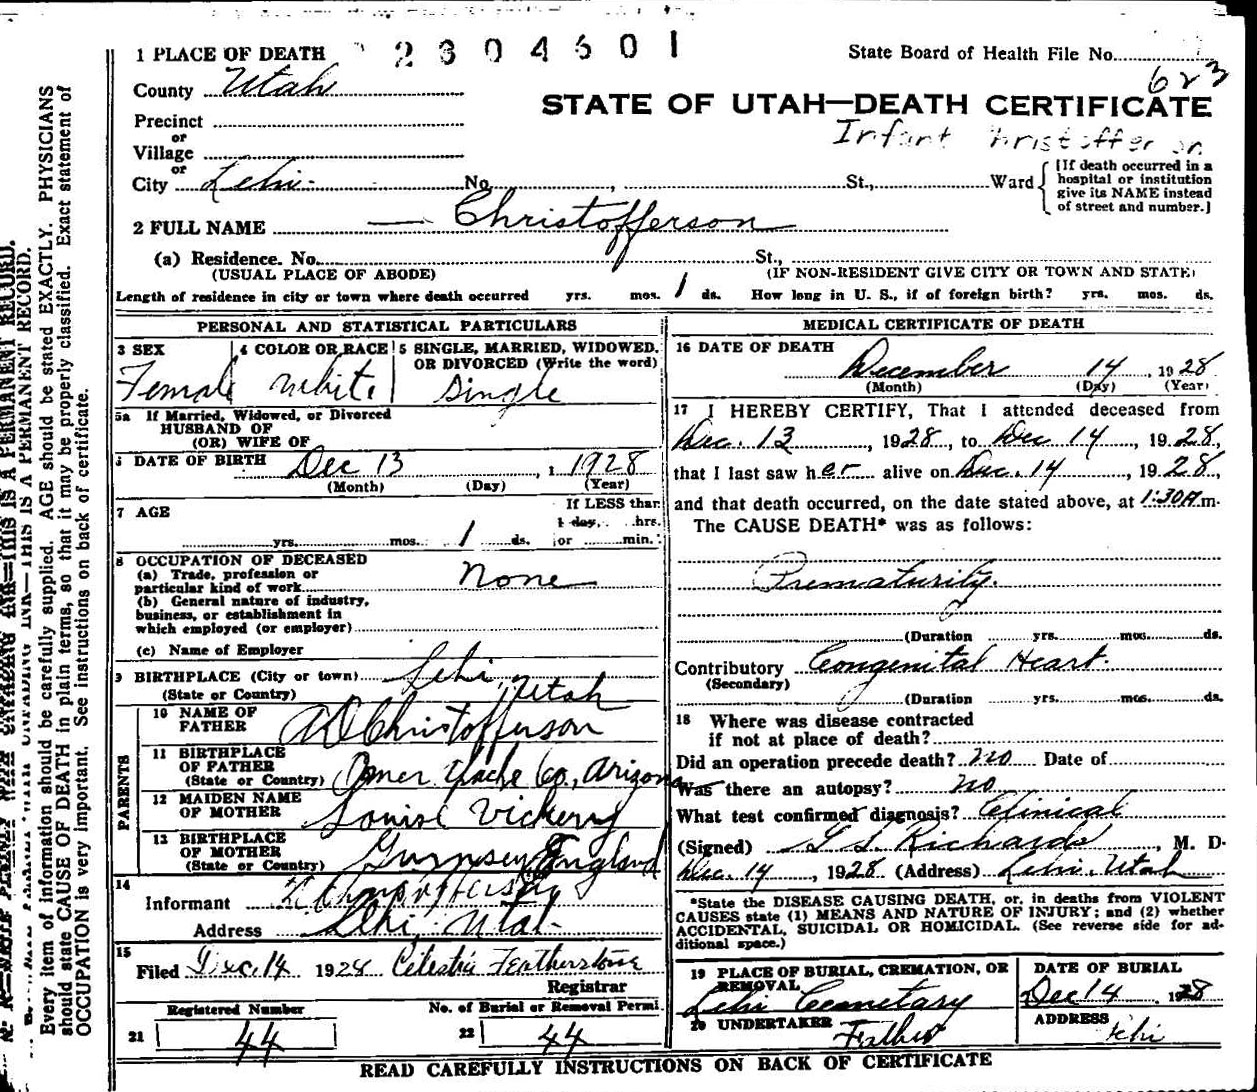 2304601
State Board of Health File No.
623
STATE OF UTAH—DEATH CERTIFICATE
Infant Christofferson
1 PLACE OF DEATH
County Utah
Precinct
or
Village
or
City Lehi No. , St., Ward
[If death occurred in a
hospital or institution
give its NAME instead
of street and number.]
2 FULL NAME — Christofferson
(a) Residence. No. St.,
(USUAL PLACE OF ABODE) (IF NON-RESIDENT GIVE CITY OR TOWN AND STATE)
Length of residence in city or town where death occurred yrs. mos. 1 ds. How long in U. S., if of foreign birth? yrs. mos. ds.
PERSONAL AND STATISTICAL PARTICULARS
3 SEX
Female
4 COLOR OR RACE
White
5 SINGLE, MARRIED, WIDOWED,
OR DIVORCED (Write the word)
Single
5a If Married, Widowed, or Divorced
HUSBAND OF
(OR) WIFE OF
DATE OF BIRTH Dec 13, 1928
(Month) (Day) (Year)
7 AGE
yrs. mos. 1 ds.
If LESS than
1 day, hrs.
or min.
8 OCCUPATION OF DECEASED
(a) Trade, profession or
particular kind of work None
(b) General nature of industry,
business, or establishment in
which employed (or employer)
(c) Name of Employer
9 BIRTHPLACE (City or town) Lehi,
(State or Country) Utah
PARENTS
10 NAME OF
FATHER A D Christofferson
11 BIRTHPLACE
OF FATHER
(State or Country) Apache Co., Arizona
12 MAIDEN NAME
OF MOTHER Louise Vickery
13 BIRTHPLACE
OF MOTHER
(State or Country) Gurnsey England
14
Informant Christofferson
Address Lehi, Utah
15
Filed Dec. 14 1928 Celestia Featherstone
Registrar
Registered Number
21 44
No. of Burial or Removal Permi.
22 44
MEDICAL CERTIFICATE OF DEATH
16 DATE OF DEATH
December 14, 1928
(Month) (Day) (Year)
17 I HEREBY CERTIFY, That I attended deceased from
Dec. 13, 1928, to Dec 14, 1928,
that I last saw her alive on Dec. 14, 1928,
and that death occurred, on the date stated above, at 1:30 A.m.
The CAUSE DEATH* was as follows:
Prematurity.
(Duration yrs. mos. ds.
Contributory Congenital Heart.
(Secondary)
(Duration yrs. mos. ds.
18 Where was disease contracted
if not at place of death?
Did an operation precede death? No Date of
Was there an autopsy? No
What test confirmed diagnosis? Clinical
(Signed) G S Richards, M. D.
Dec. 14, 1928 (Address) Lehi, Utah
*State the DISEASE CAUSING DEATH, or, in deaths from VIOLENT
CAUSES state (1) MEANS AND NATURE OF INJURY; and (2) whether
ACCIDENTAL, SUICIDAL OR HOMICIDAL. (See reverse side for ad-
ditional space.)
19 PLACE OF BURIAL, CREMATION, OR
REMOVAL
Lehi Cemetary
DATE OF BURIAL
Dec 14 1928
20 UNDERTAKER
Father
ADDRESS
Lehi
READ CAREFULLY INSTRUCTIONS ON BACK OF CERTIFICATE
THIS IS A PERMANENT RECORD.
THIS IS A PERMANENT RECORD.
Every item of information should be carefully supplied. AGE should be stated EXACTLY. PHYSICIANS
should state CAUSE OF DEATH in plain terms, so that it may be properly classified. Exact statement of
OCCUPATION is very important. See instructions on back of certificate.